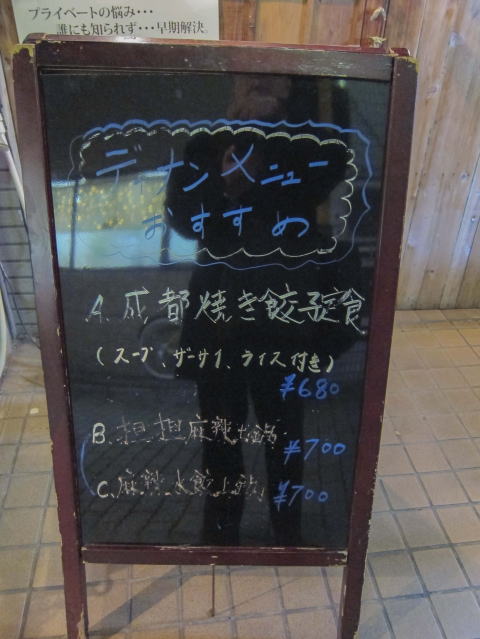 プライベートの悩み・・・
誰にも知られず・・・早期解決。
ディナンメニュー
おすすめ
A.成都焼き餃子定食
(スープ、ザーサイ、ライス付き)
¥680
B.担担麻辣土鍋
¥700
C.麻辣水餃土鍋
¥700